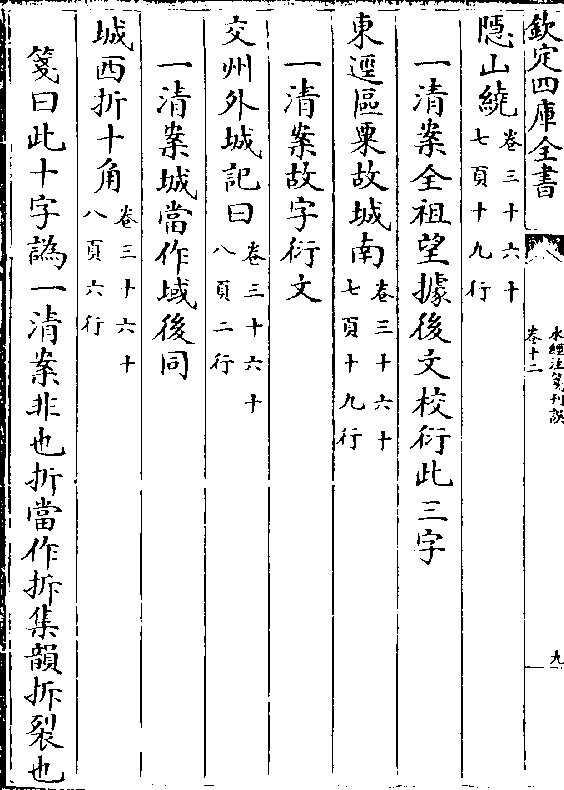 欽定四庫全書
水經注箋刊誤
卷十二
九
隱山繞卷三十六十七頁十九行
一清案全祖望據後文校衍此三字
東逕區粟故城南卷三十六十七頁十九行
一清案故字衍文
交州外城記曰卷三十六十八頁二行
一清案城當作域後同
城西折十角卷三十六十八頁六行
箋曰此十字譌一清案非也折當作拆集韻拆裂也